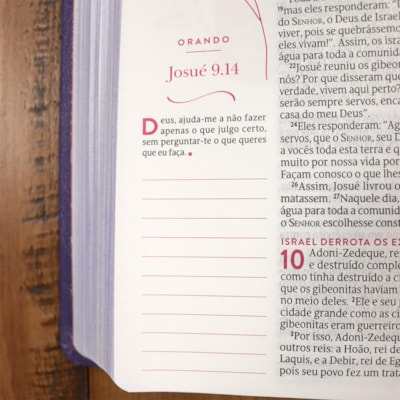 ORANDO
Josué 9.14
Deus, ajuda-me a não fazer
apenas o que julgo certo,
sem perguntar-te o que queres
que eu faça.
19mas eles responderam: "U
do SENHOR, o Deus de Israel
viver, pois se quebrássemo
eles vivam!". Assim, os isra
água para toda a comunida
22Josué reuniu os gibeon
nós? Por que disseram que
verdade, vivem aqui perto?
serão sempre servos, enca
casa do meu Deus".
24Eles responderam: "Ag
servos, que o SENHOR, seu D
a vocês toda esta terra e qu
muito por nossa vida por
Façam conosco o que lhes
26Assim, Josué livrou o
matassem. 27Naquele dia,
água para toda a comunid
o SENHOR escolhesse const
ISRAEL DERROTA OS EX
10 Adoni-Zedeque, re
e destruído comple
como tinha destruído a ci
que os gibeonitas haviam
no meio deles. 2Ele e seu p
cidade grande como as ci
gibeonitas eram guerreiro
3Por isso, Adoni-Zedeq
outros reis: a Hoão, rei de
Laquis, e a Debir, rei de Eg
pois seu povo fez um trata